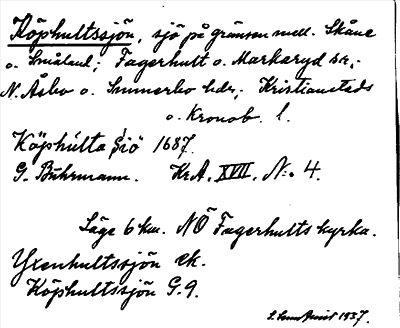 Köphultssjön, sjö på gränsen mell. Skåne
o. Småland; Fagerhult o. Markaryd snr,
N. Åsbo o. Sunnerbo hdr; Kristianstads
o. Kronob. l.
Köphúlta Siö 1687.
G. Buhrmann. KrA. XVII. N:o 4.
Läge 6 km. NÖ Fagerhults kyrka.
Yxenhultssjön ek.
Köphultssjön G.9.
1937.